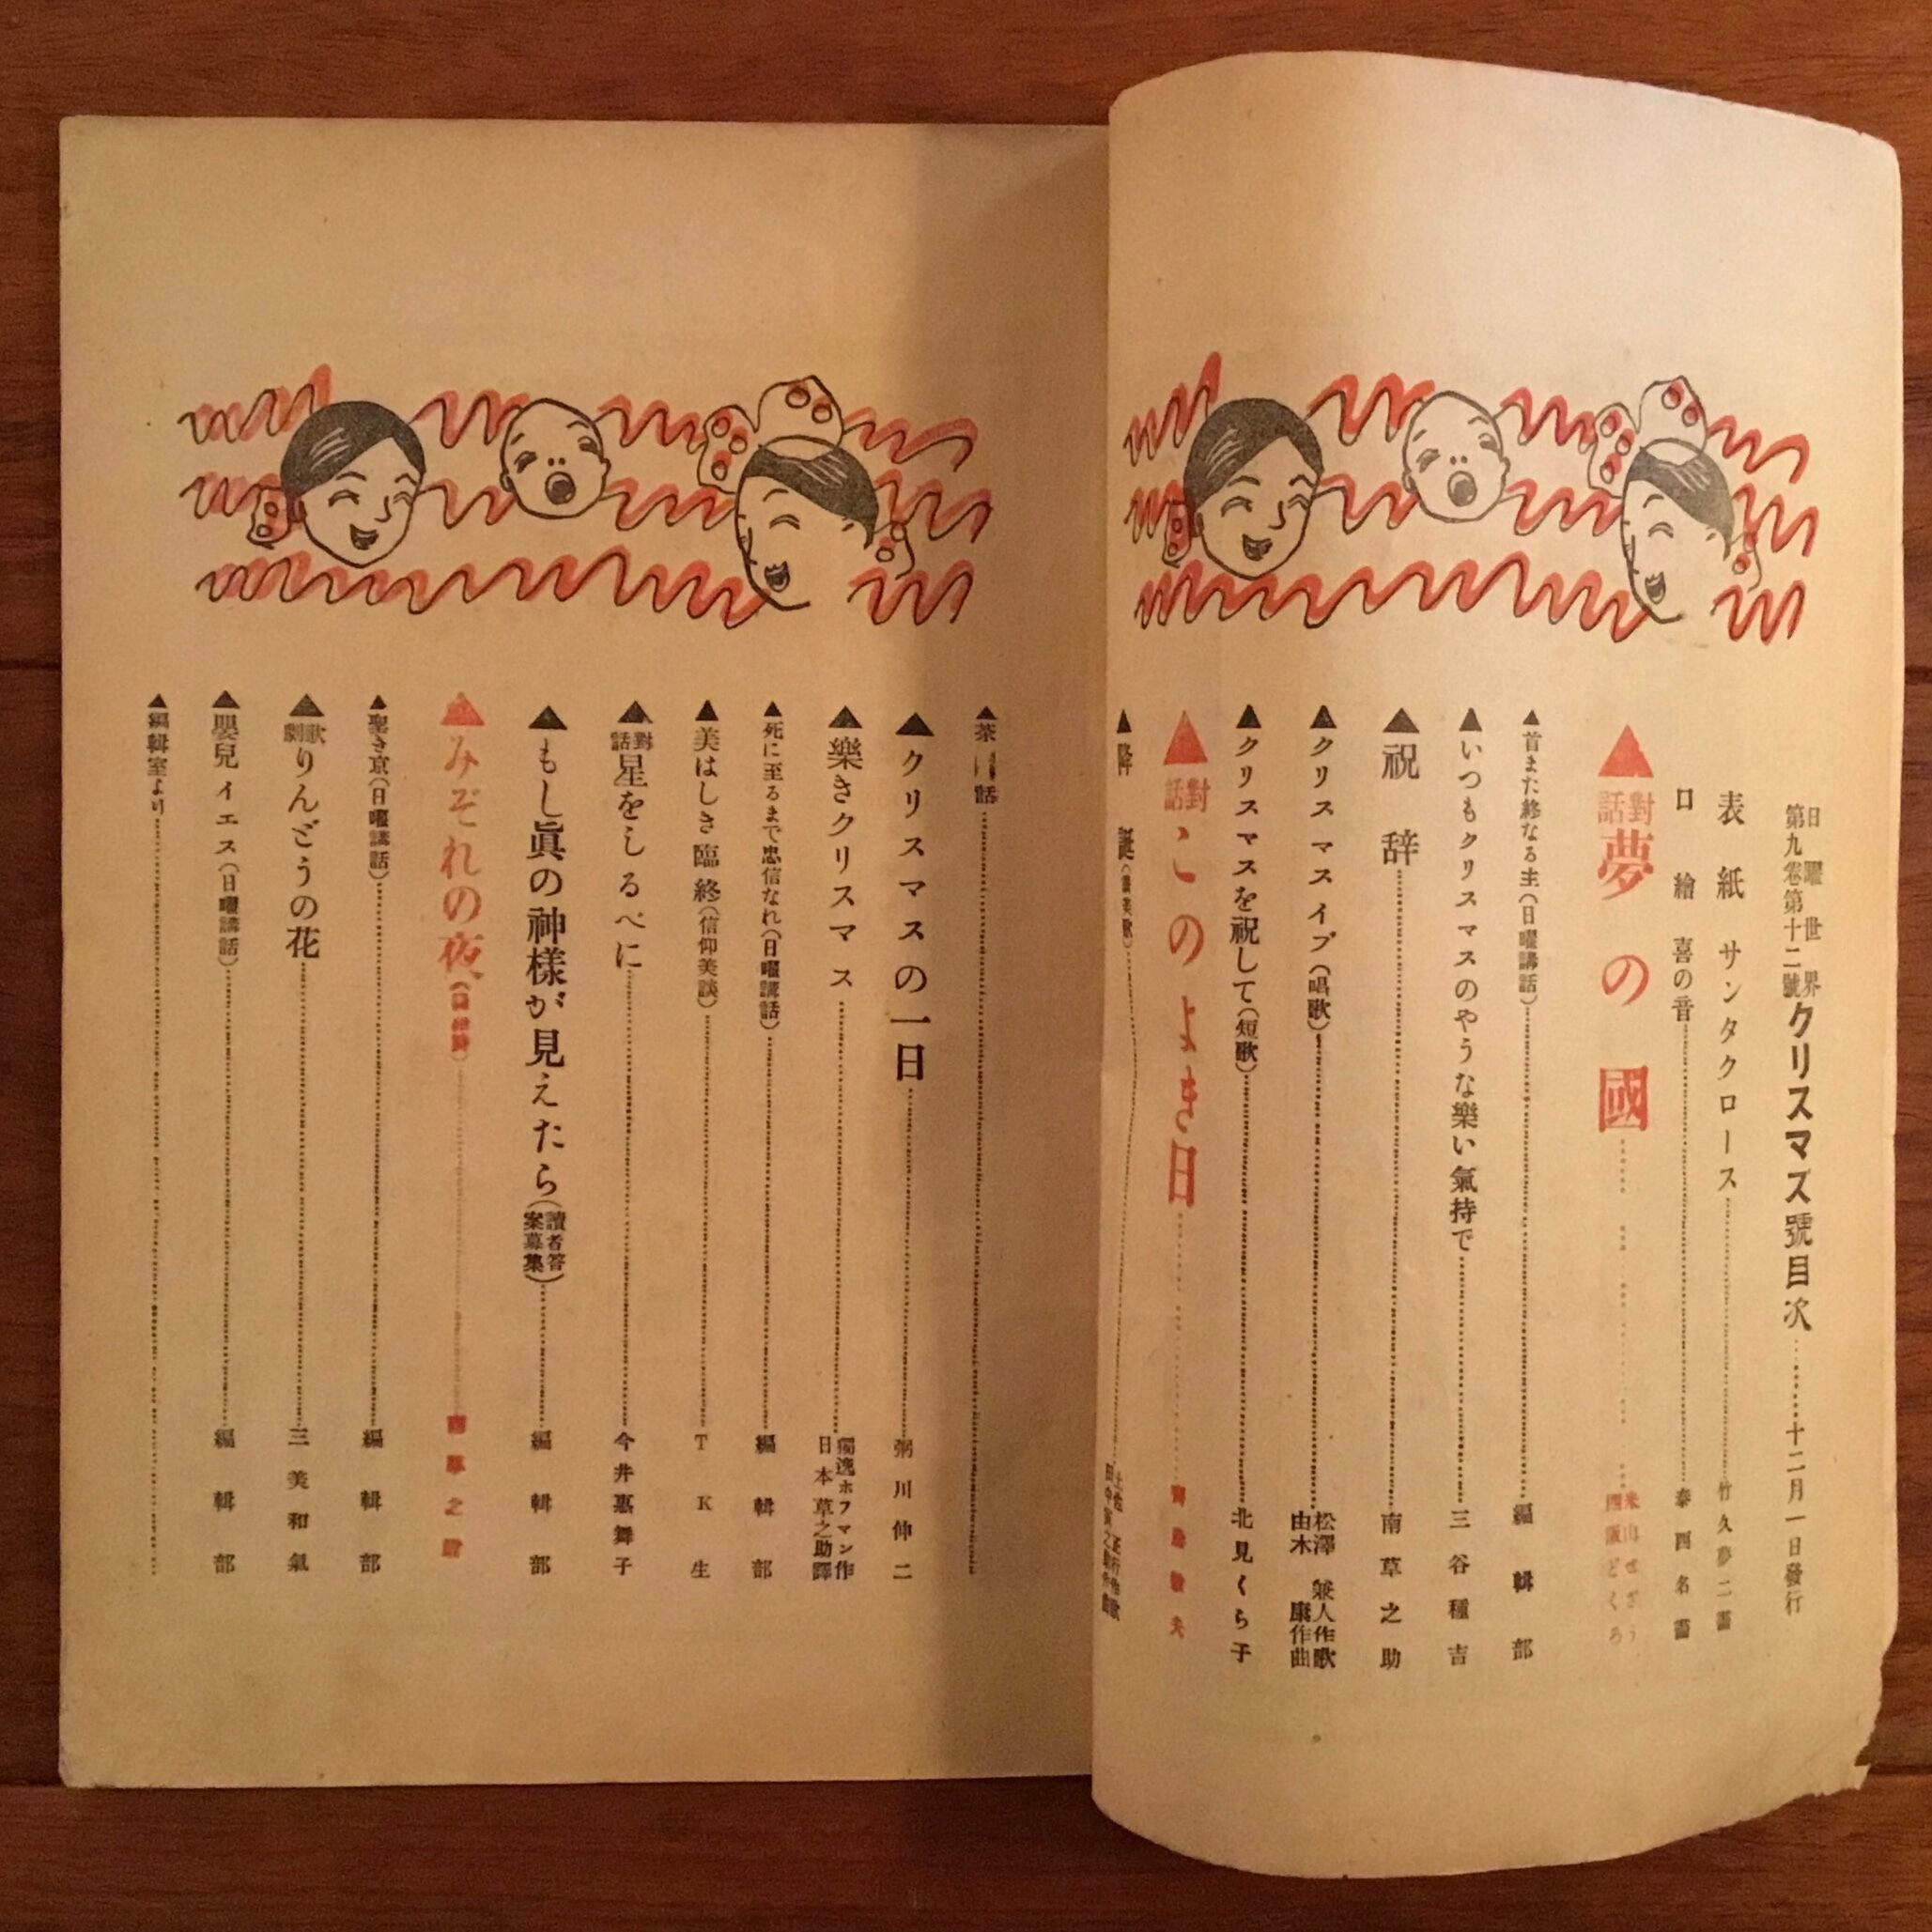 日曜世界
第九巻第十二號
クリスマス號目次 十二月一日發行
表紙 サンタクロース 竹久夢二畵
口繪 喜の音 泰西名畵
▲對話 夢の國
▲首また終なる主(日曜講話) 編輯部
▲いつもクリスマスのやうな樂い氣持で 三谷種吉
▲祝辞 南草之助
▲クリスマスイブ(唱歌) 松澤兼人作歌
由木康作曲
▲クリスマスを祝して(短歌) 北見くら子
▲對話 このよき日
▲降誕
▲茶話
▲クリスマスの一日 粥川伸二
▲樂きクリスマス 獨逸ホフマン作
日本草之助譯
▲死に至るまで忠信なれ(日曜講話) 編輯部
▲美はしき臨終(信仰美談) TK生
▲對話 星をしるべに 今井惠舞子
▲もし眞の神樣が見えたら(讀者答案募集) 編輯部
▲みぞれの夜
▲聖き京(日曜講話) 編輯部
▲歌劇 りんどうの花 三美和氣
▲嬰兒イエス(日曜講話) 編輯部
▲編輯室より